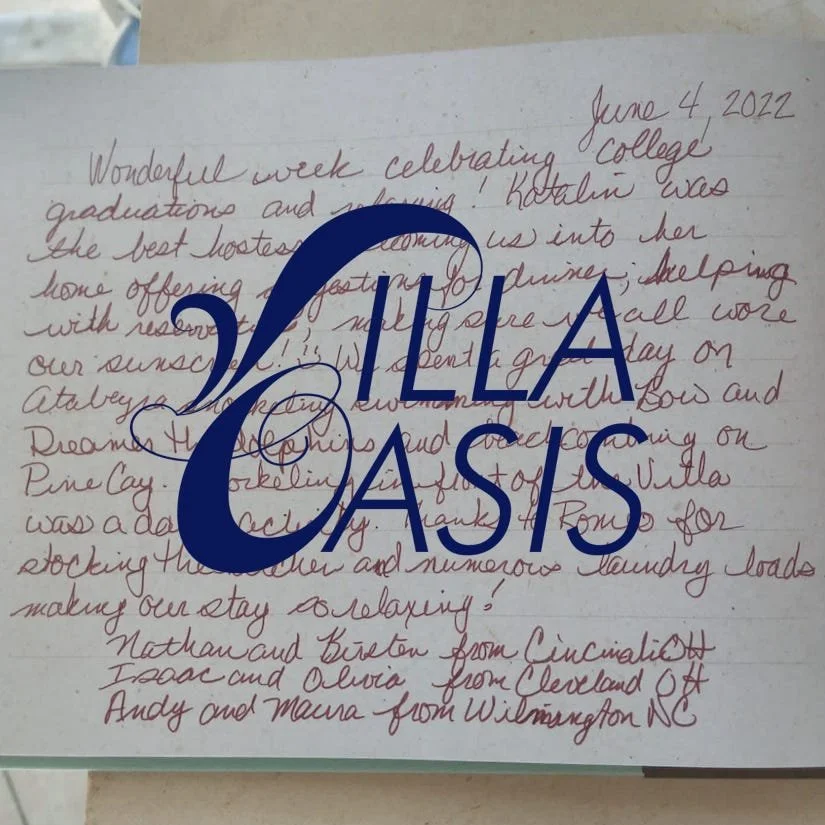 June 4, 2022
Wonderful week celebrating college
graduations and relaxing! Katalin was
the best hostess welcoming us into her
home offering suggestions for dinner, helping
with reservations, making sure we all wore
our sunscreen!!! We spent a great day on
Atabeyra snorkeling swimming with Bow and
Dreamer the dolphins and beachcombing on
Pine Cay. Snorkeling in front of the Villa
was a daily activity. Thanks to Romeo for
stocking the kitchen and numerous laundry loads
making our stay so relaxing!
Nathan and Kirsten from Cincinati OH
Isaac and Olivia from Cleveland OH
Andy and Maura from Wilmington NC
VILLA
OASIS